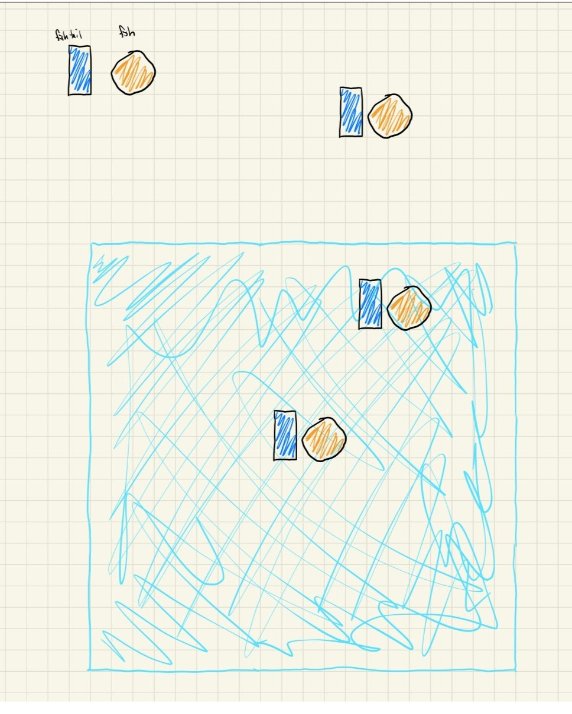 fish tail
fish